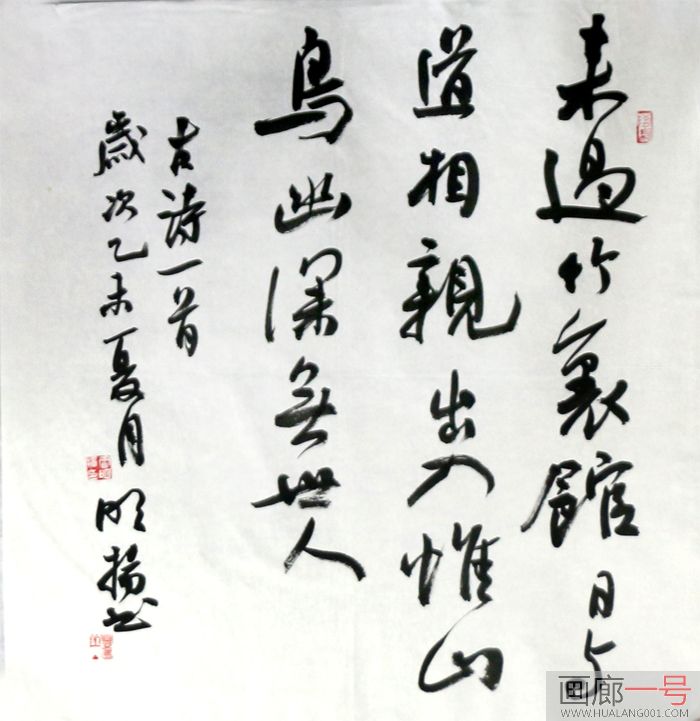 来過竹裏館日与
道相親出入惟山
鳥幽深無世人
古詩一首
歲次乙未夏月
明揚書
画廊一号
WWW.HUALANG001.COM